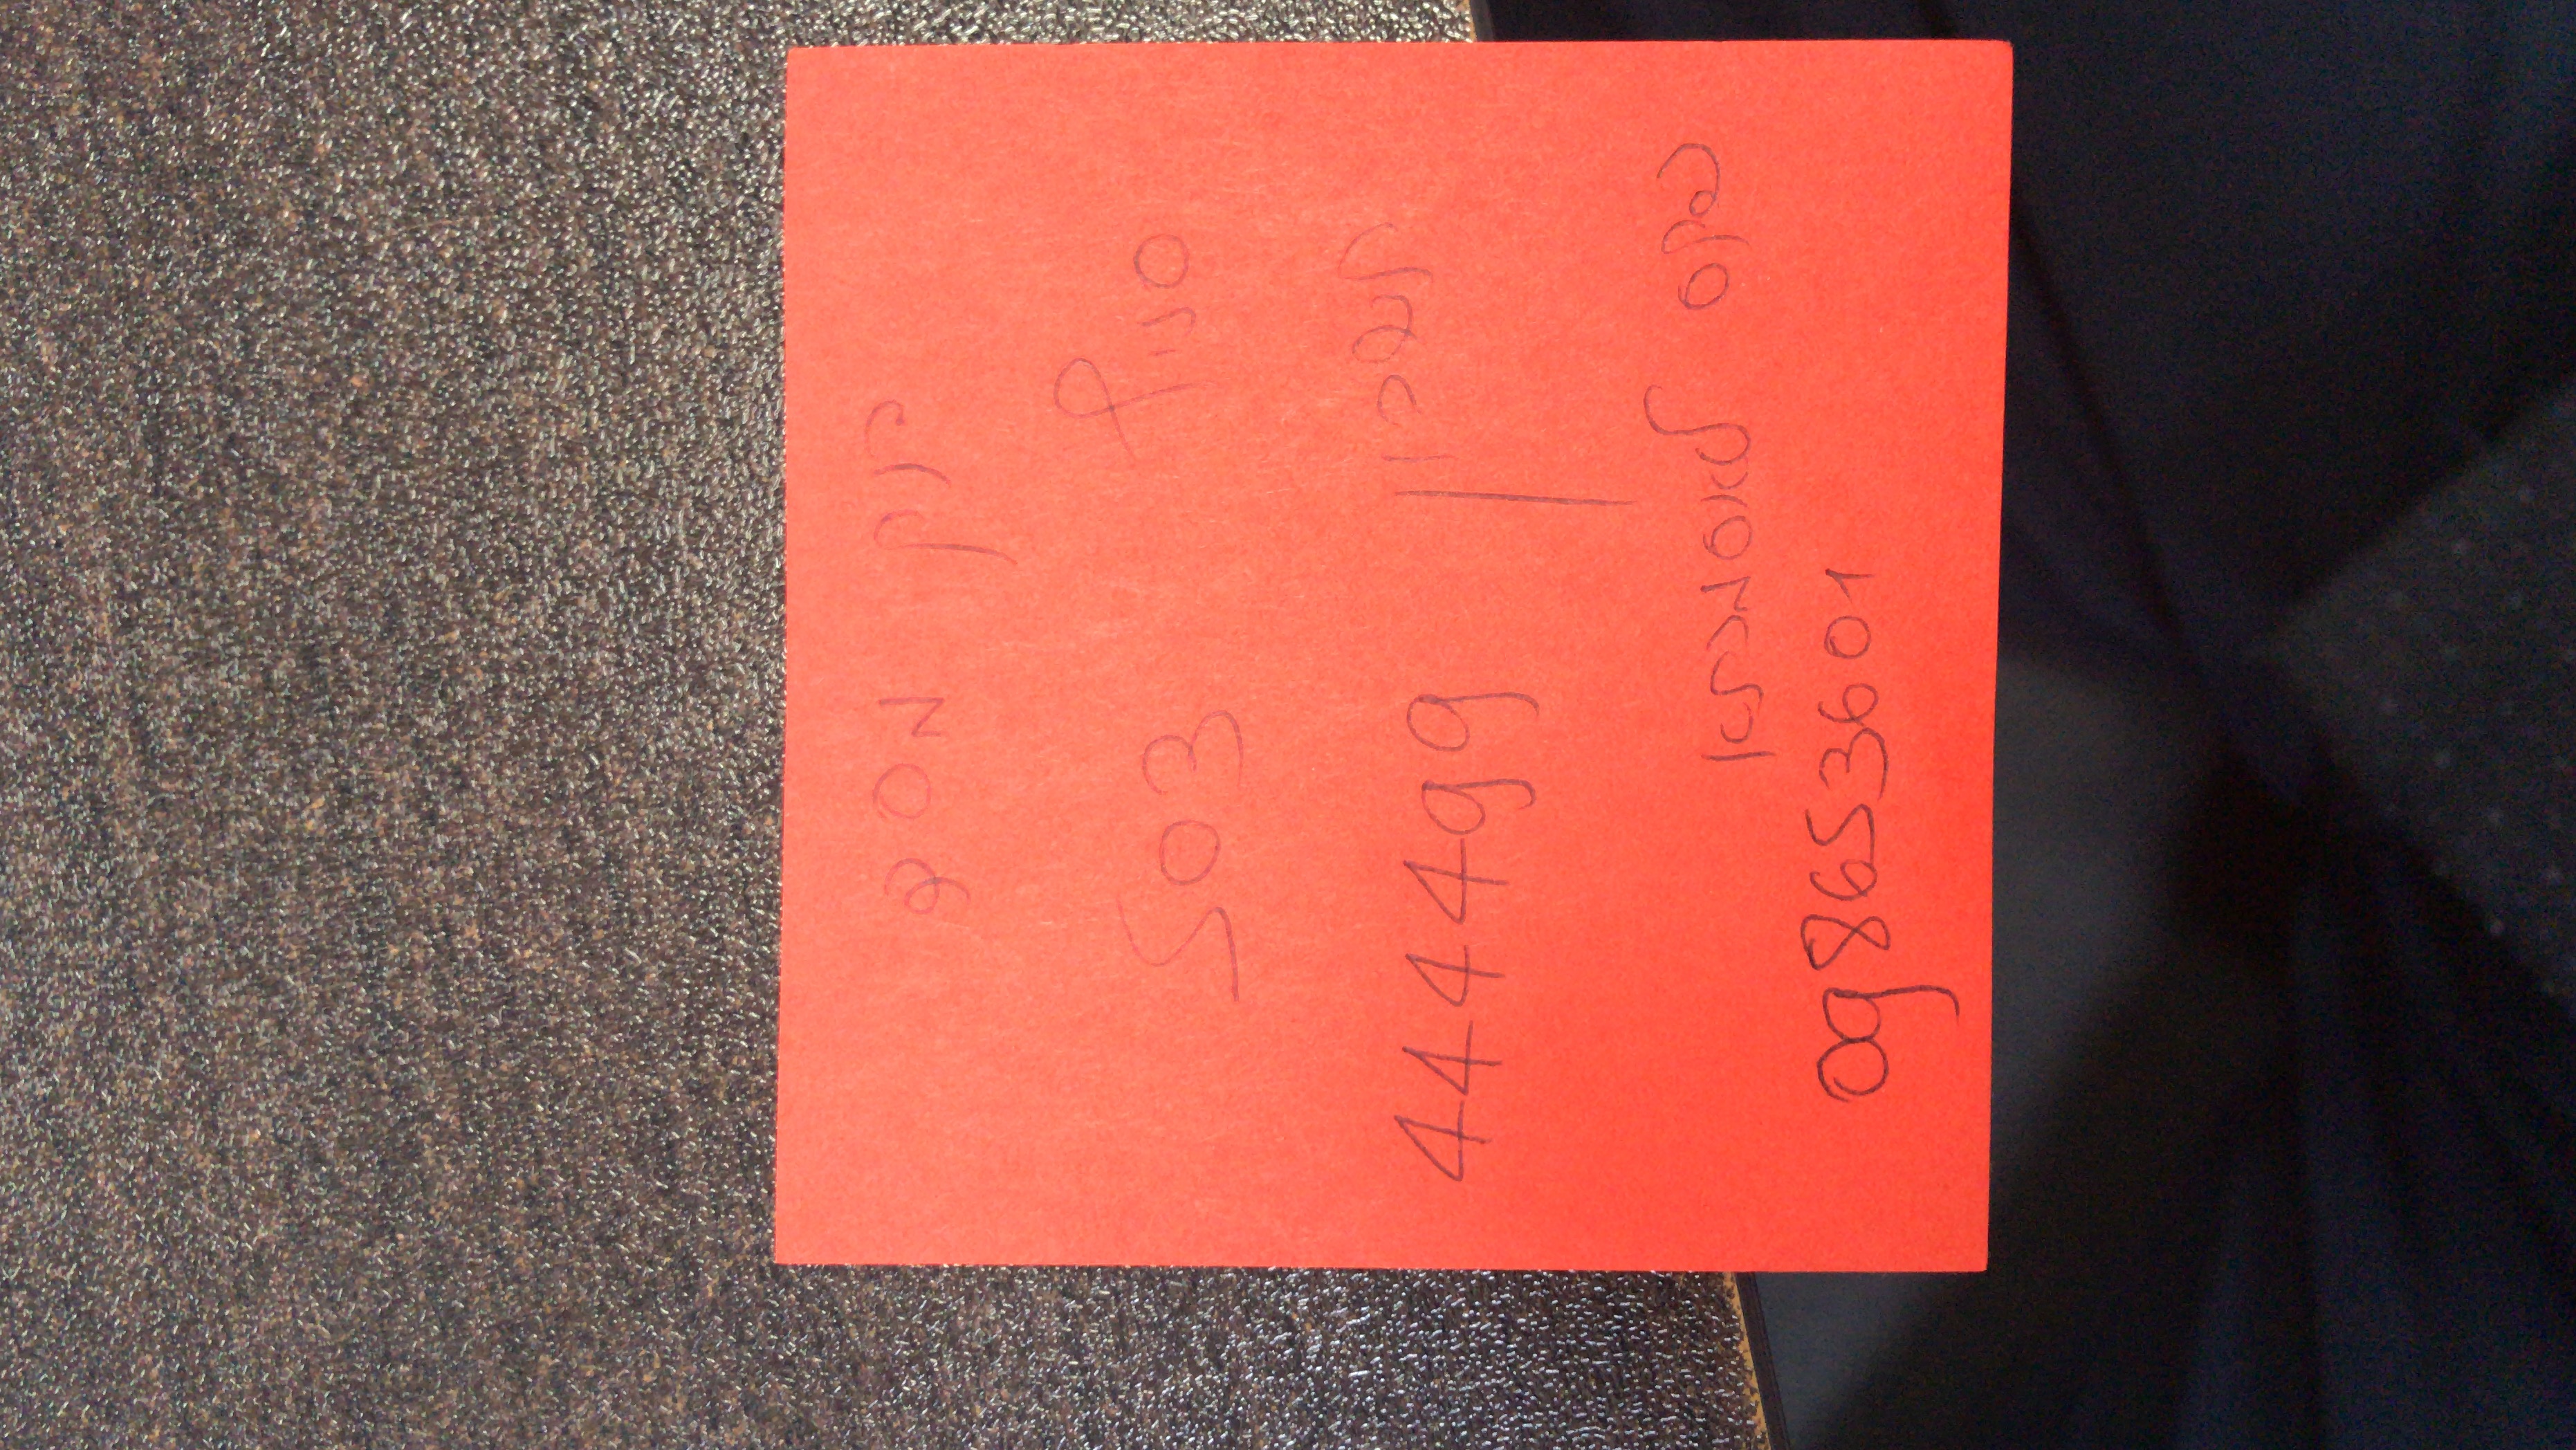 בנק מסד
סניף 503
חשבון 444499
פקס לאסמכתא
098653601